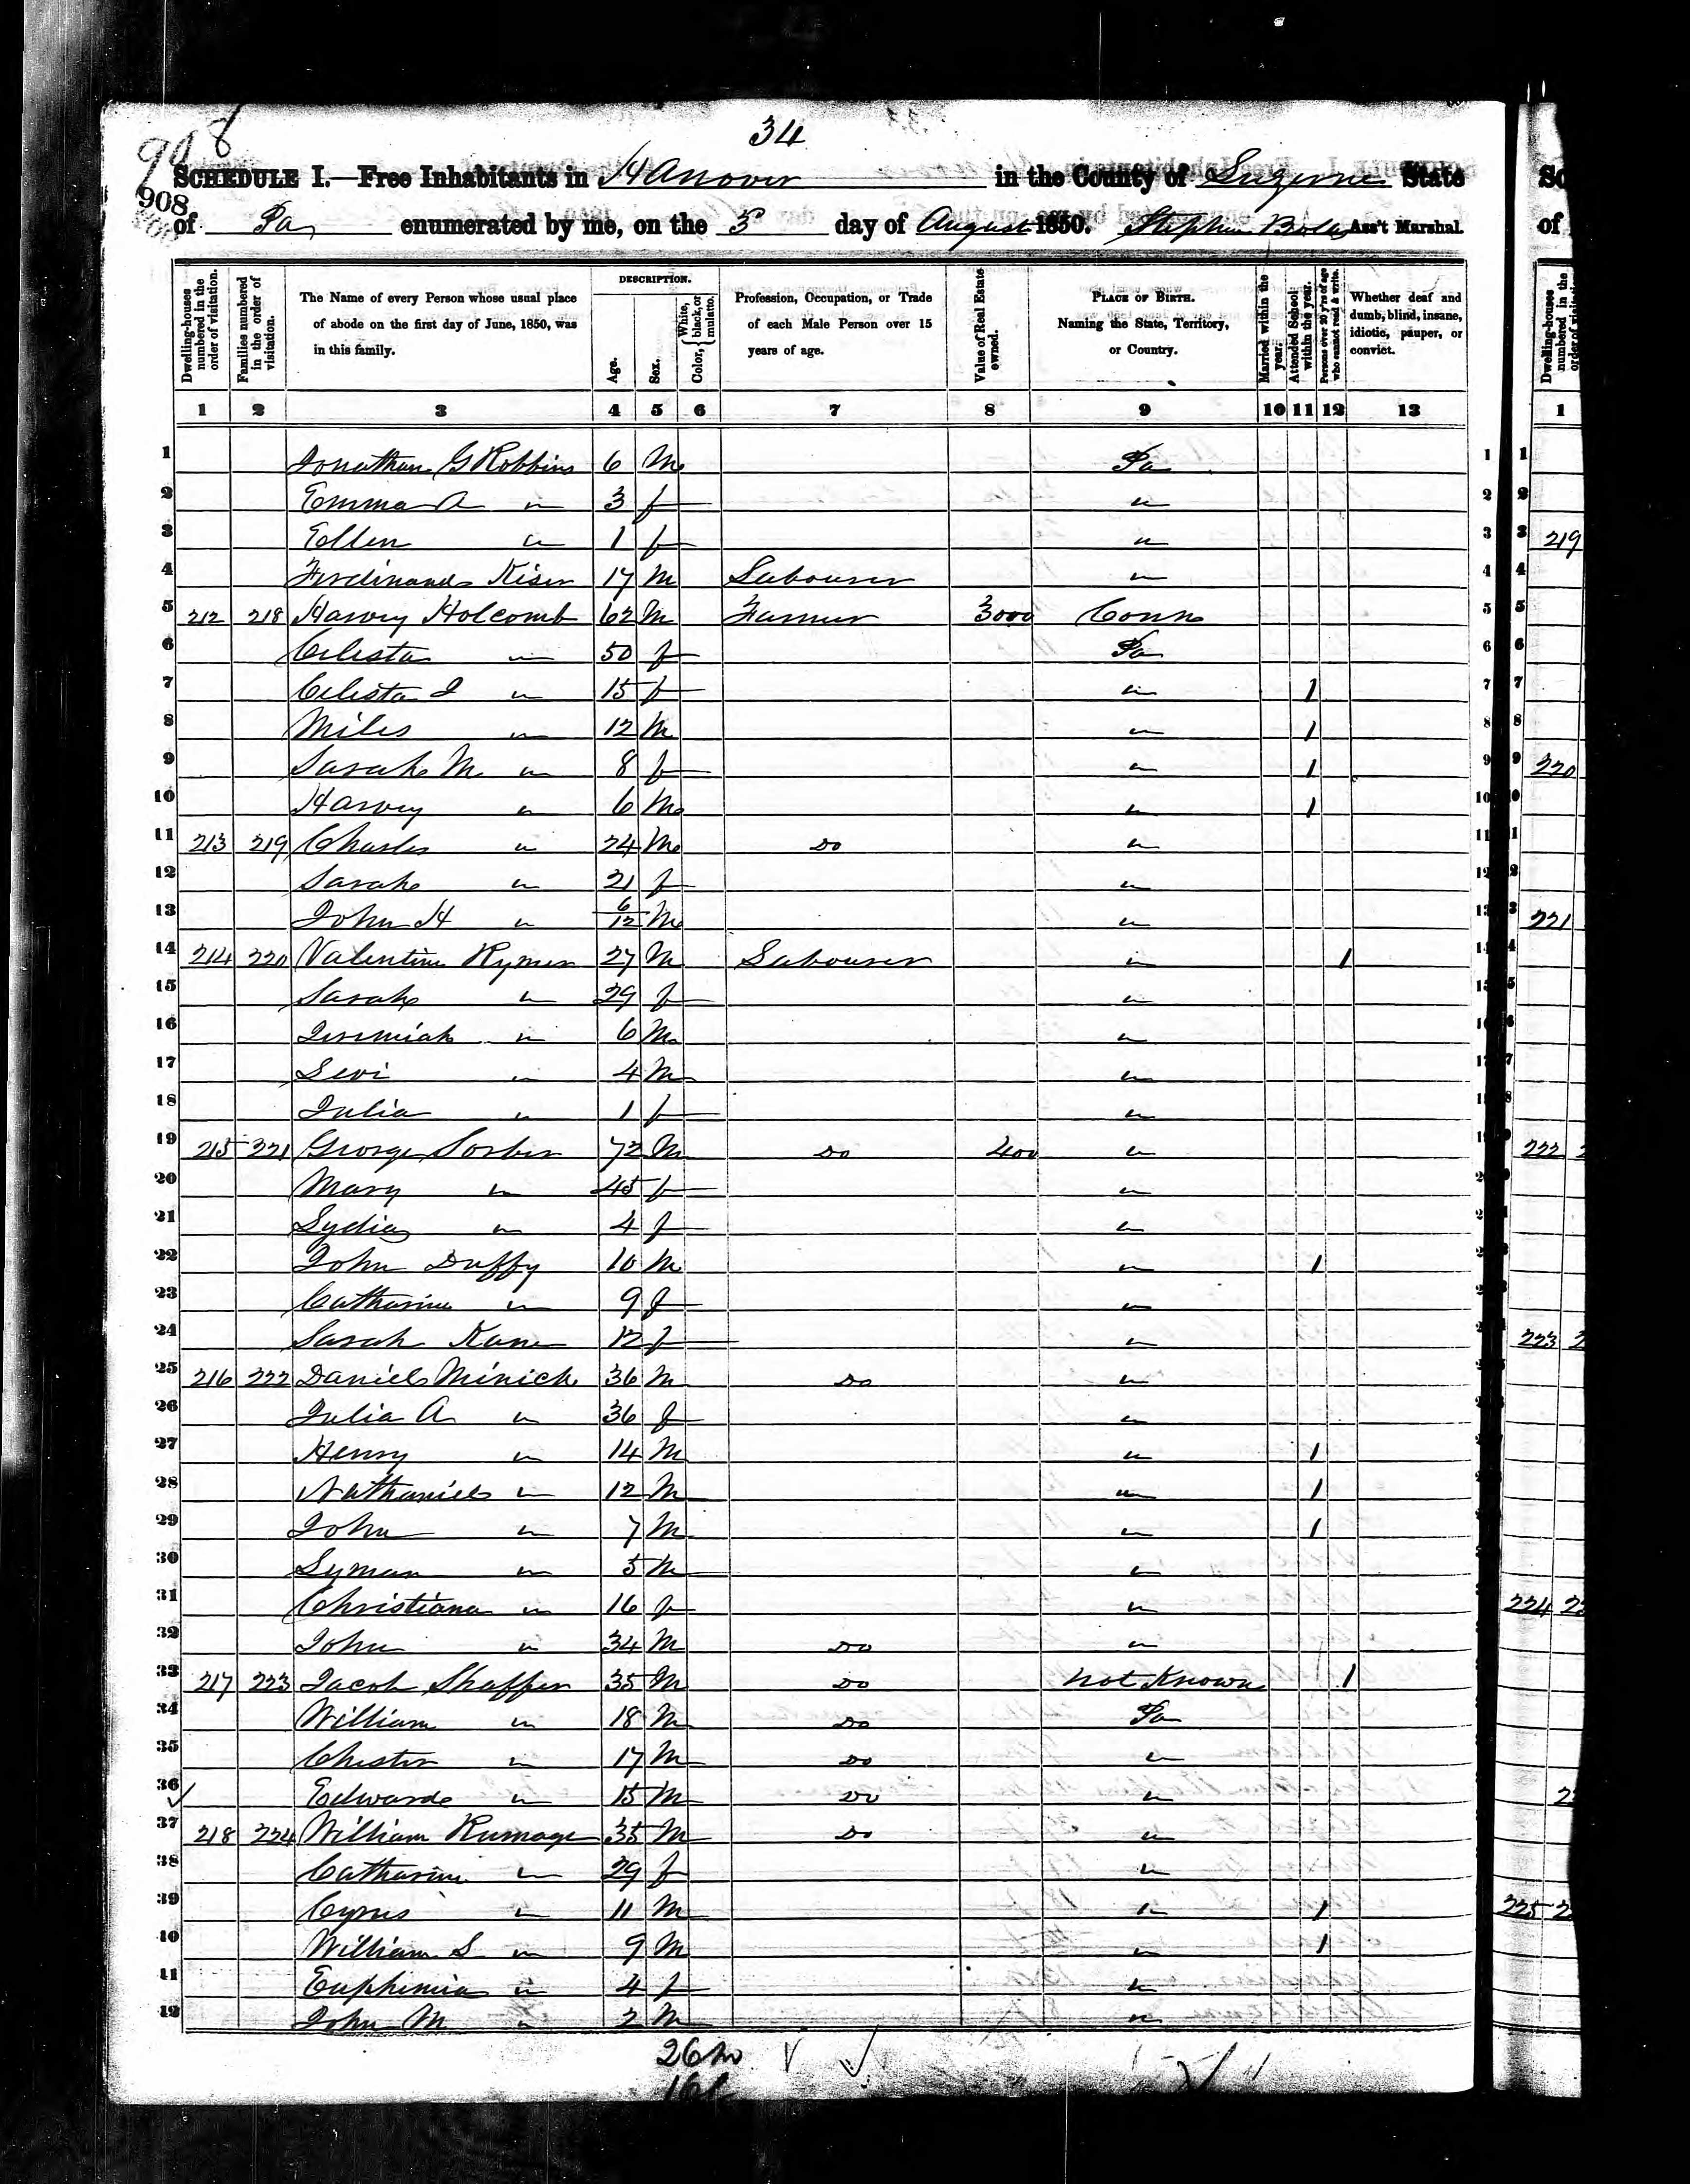 34
908
SCHEDULE I.—Free Inhabitants in Hanover in the County of Luzerne State
908
of Pa enumerated by me, on the 5 day of August 1850. Stephen Ass't Marshal.
Dwelling-houses numbered in the order of visitation.
Families numbered in the order of visitation.
The Name of every Person whose usual place of abode on the first day of June, 1850, was in this family.
DESCRIPTION.
Age.
Sex.
Color, White, black, or mulatto.
Profession, Occupation, or Trade of each Male Person over 15 years of age.
Value of Real Estate owned.
PLACE OF BIRTH. Naming the State, Territory, or Country.
Married within the year.
Attended School within the year.
Persons over 20 y'rs of age who cannot read & write.
Whether deaf and dumb, blind, insane, idiotic, pauper, or convict.
1 2 3 4 5 6 7 8 9 10 11 12 13
1 Jonathan G Robbins 6 M Pa 1
2 Emma A " 3 f " 2
3 Ellen " 1 f " 3
4 Ferdinand Kiser 17 M Labourer " 4
5 212 218 Harvey Holcomb 62 M Farmer 3000 Conn 5
6 Celesta " 50 f Pa 6
7 Celesta J " 15 f " 1 7
8 Miles " 12 M " 1 8
9 Sarah M " 8 f " 1 9
10 Harvey " 6 M " 1 10
11 213 219 Charles " 24 M Do " 11
12 Sarah " 21 f "
13 John H " 6/12 M "
14 214 220 Valentine Rymer 27 M Labourer " 1
15 Sarah " 29 f "
16 Jeremiah " 6 M "
17 Levi " 4 M "
18 Julia " 1 f "
19 215 221 George Sorber 72 M Do 400 "
20 Mary " 45 f "
21 Lydia " 4 f "
22 John Duffy 10 M " 1
23 Catharine " 9 f "
24 Sarah Kane 12 f "
25 216 222 Daniel Minich 36 M Do "
26 Julia A " 36 f "
27 Henry " 14 M " 1
28 Nathaniel " 12 M " 1
29 John " 7 M " 1
30 Lyman " 5 M "
31 Christiana " 16 f "
32 John " 34 M Do "
33 217 223 Jacob Shaffer 35 M Do not Known 1
34 William " 18 M Do Pa
35 Chester " 17 M Do "
36 Edward " 15 M Do "
37 218 224 William Rumage 35 M Do "
38 Catharine " 29 f "
39 Cyrus " 11 M " 1
40 William S " 9 M " 1
41 Euphemia " 4 f "
42 John M " 2 M "
26 m
16 f